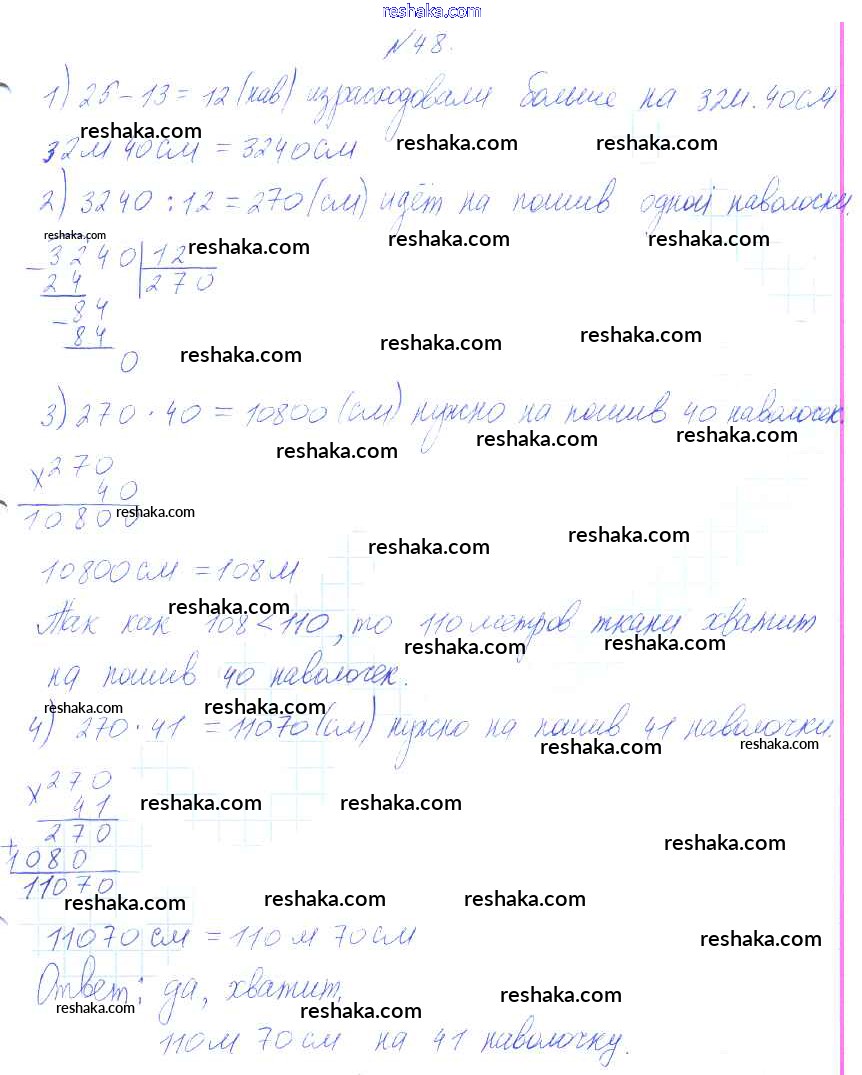 reshaka.com
№48.
1) 25 - 13 = 12 (нав) израсходовали больше на 32м. 40см
reshaka.com reshaka.com reshaka.com
32м 40см = 3240см
2) 3240 : 12 = 270 (см) идёт на пошив одной наволочки.
reshaka.com reshaka.com reshaka.com reshaka.com
- 3240 | 12
24 | 270
- 84
84
reshaka.com reshaka.com reshaka.com
0
3) 270 · 40 = 10800 (см) нужно на пошив 40 наволочек.
reshaka.com reshaka.com reshaka.com
x 270
40
10800 reshaka.com
reshaka.com reshaka.com
10800см = 108м
reshaka.com
Так как 108 < 110, то 110 метров ткани хватит
reshaka.com reshaka.com
на пошив 40 наволочек.
reshaka.com reshaka.com
4) 270 · 41 = 11070 (см) нужно на пошив 41 наволочки.
reshaka.com reshaka.com
x 270
41
reshaka.com reshaka.com
270
+
1080
reshaka.com
11070
reshaka.com reshaka.com reshaka.com
11070 см = 110 м 70 см
reshaka.com
Ответ: да, хватит.
reshaka.com reshaka.com reshaka.com
110м 70см на 41 наволочку.